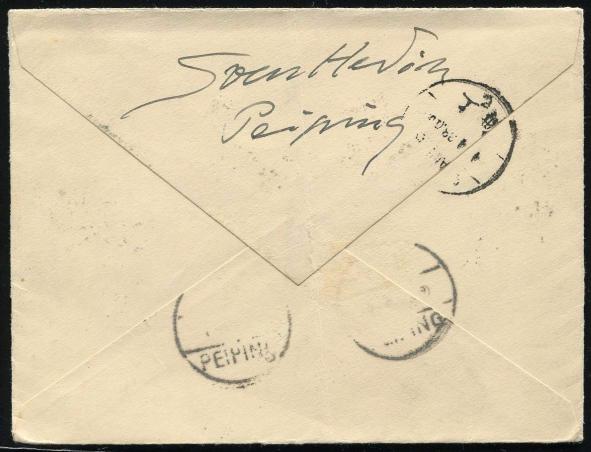 Sven Hedin
Peiping
PEIPING
PING